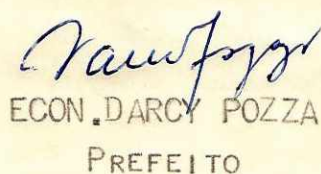 ECON. DARCY POZZA
PREFEITO